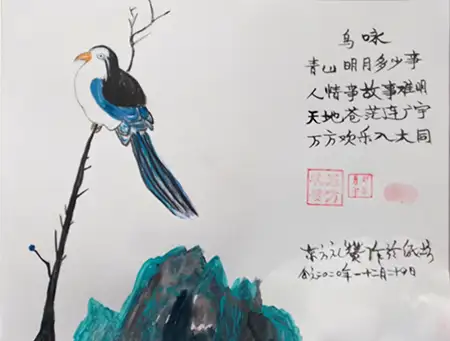 鸟咏
青山明月多少事
人情事故事难明
天地苍茫连广宇
万方欢乐入大同
东方礼赞作於
二〇二〇年一十二月二十9日